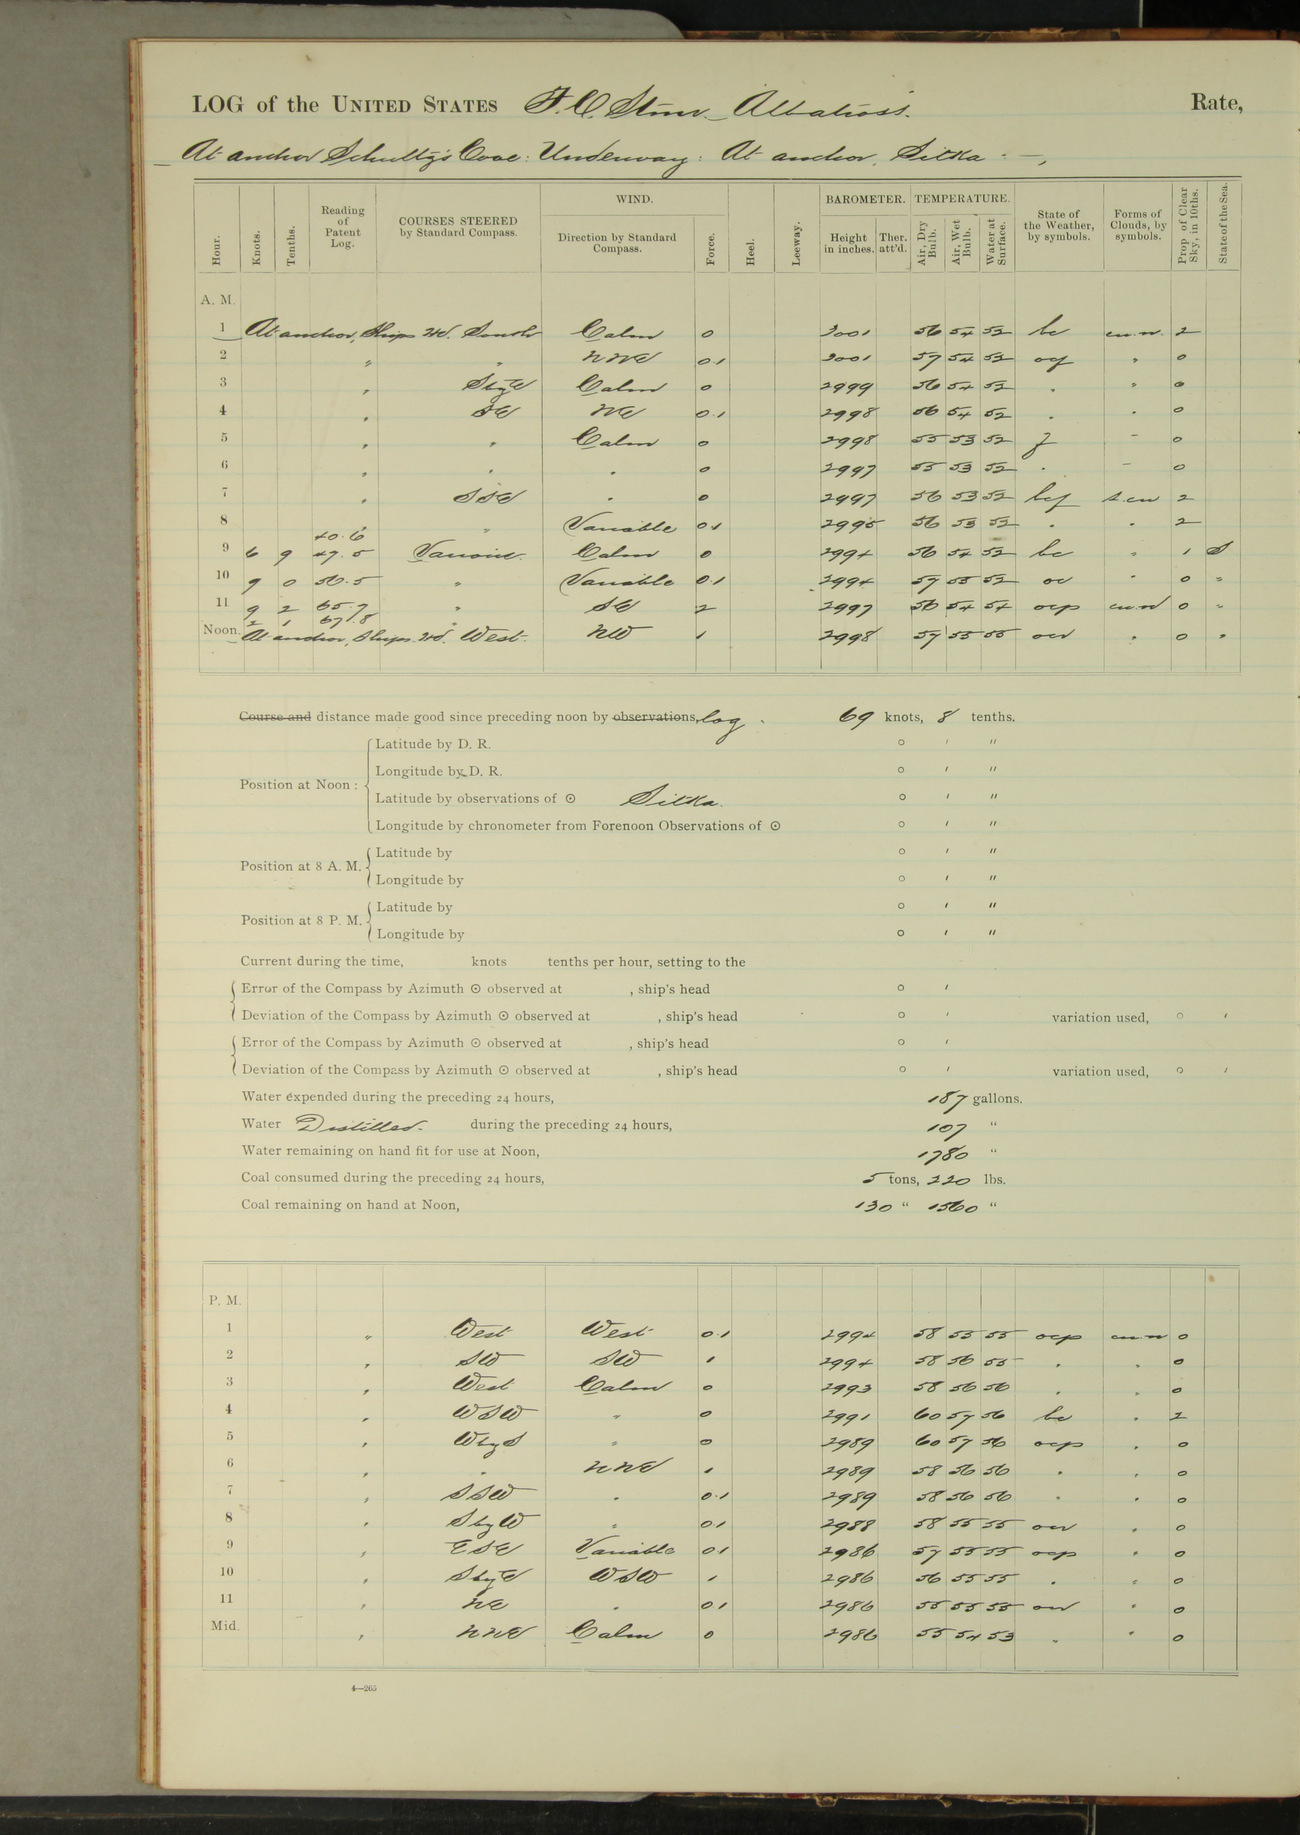 LOG of the UNITED STATES F. C. Stmr. Albatross. Rate,
At anchor Schultz's Cove: Underway: At anchor, Sitka
Hour. Knots. Tenths. Reading of Patent Log. COURSES STEERED by Standard Compass. WIND. Direction by Standard Compass. Force. Heel. Leeway. BAROMETER. Height in inches. Ther. att'd. TEMPERATURE. Air, Dry Bulb. Air, Wet Bulb. Water at Surface. State of the Weather, by symbols. Forms of Clouds, by symbols. Prop. of Clear Sky, in 10ths. State of the Sea.
A. M.
1 At anchor, Ships Hd. South Calm 0 3001 56 54 52 bc cu.n. 2
2 " " NNE 0.1 3001 57 54 52 ocf " 0
3 " SbyE Calm 0 2999 56 54 52 " " 0
4 " SE NE 0.1 2998 56 54 52 " " 0
5 " " Calm 0 2998 55 53 52 f - 0
6 " " " 0 2997 55 53 52 " - 0
7 " SSE " 0 2997 56 53 52 bcf s.cu 2
8 40.6 " Variable 0.1 2995 56 53 52 " " 2
9 6 9 47.5 Various Calm 0 2994 56 54 52 bc " 1 S
10 9 0 56.5 " Variable 0.1 2994 57 55 52 oc " 0 "
11 9 2 65.7 " SE 2 2997 56 54 54 ocp cu.n 0 "
2 1 67.8 "
Noon. At anchor, Ships Hd. West. NW 1 2998 57 55 55 our " 0 "
Course and distance made good since preceding noon by observations, log. 69 knots, 8 tenths.
Latitude by D. R. ° ′ ″
Longitude by D. R. ° ′ ″
Position at Noon:
Latitude by observations of ☉ Sitka. ° ′ ″
Longitude by chronometer from Forenoon Observations of ☉ ° ′ ″
Position at 8 A. M. Latitude by ° ′ ″
Longitude by ° ′ ″
Position at 8 P. M. Latitude by ° ′ ″
Longitude by ° ′ ″
Current during the time, knots tenths per hour, setting to the
Error of the Compass by Azimuth ☉ observed at , ship's head ° ′
Deviation of the Compass by Azimuth ☉ observed at , ship's head ° ′ variation used, ° ′
Error of the Compass by Azimuth ☉ observed at , ship's head ° ′
Deviation of the Compass by Azimuth ☉ observed at , ship's head ° ′ variation used, ° ′
Water expended during the preceding 24 hours, 187 gallons.
Water Distilled. during the preceding 24 hours, 107 "
Water remaining on hand fit for use at Noon, 1780 "
Coal consumed during the preceding 24 hours, 5 tons, 220 lbs.
Coal remaining on hand at Noon, 130 " 1560 "
P. M.
1 " West West 0.1 2994 58 55 55 ocp cu.n 0
2 " SW SW 1 2994 58 56 55 " " 0
3 " West Calm 0 2993 58 56 56 " " 0
4 " WSW " 0 2991 60 57 56 bc " 2
5 " WbyS " 0 2989 60 57 56 ocp " 0
6 " " NNE 1 2989 58 56 56 " " 0
7 " SSW " 0.1 2989 58 56 56 " " 0
8 " SbyW " 0.1 2988 58 55 55 our " 0
9 " ESE Variable 0.1 2986 57 55 55 ocp " 0
10 " SbyE WSW 1 2986 56 55 55 " " 0
11 " NE " 0.1 2986 55 55 55 our " 0
Mid. " NNE Calm 0 2986 55 54 53 " " 0
4—265